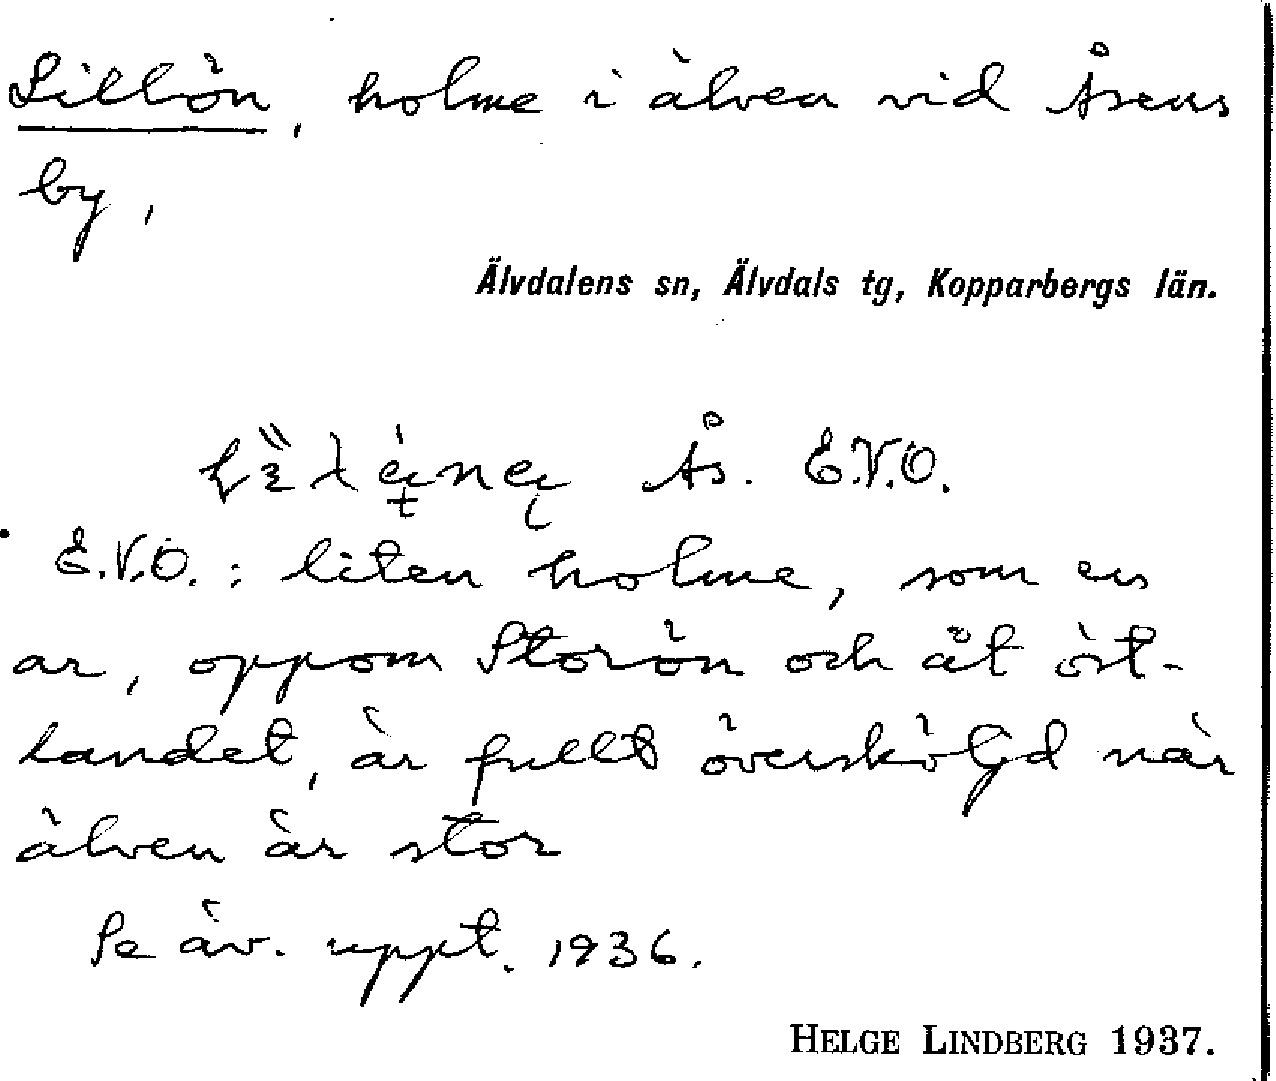 Lillön, holme i älven vid Åsens
by,
Älvdalens sn, Älvdals tg, Kopparbergs län.
Ås. E.V.O.
E.V.O.: liten holme, som en
ar, oppom Storön och åt öst-
landet, är fullt översköljd när
älven är stor
Se äv. uppt. 1936.
HELGE LINDBERG 1937.